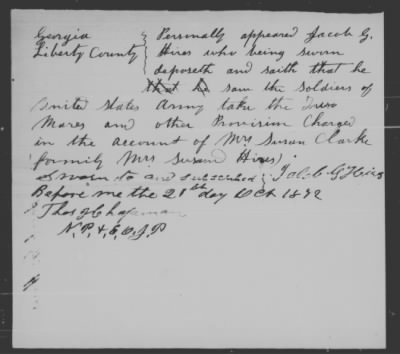 Georgia } Personally appeared Jacob G.
Liberty County } Hires who being sworn
deposeth and saith that he
that he saw the Soldiers of
United States Army take the
Mares and other Provision Charged
in the account of Mrs Susan Clarke
formily Mrs Susan Hires)
Sworn to and subscribed } Jacob G Hires
Before me the 21st day Oct 1872
Thos J Chapman
N. P. & E. O. J P